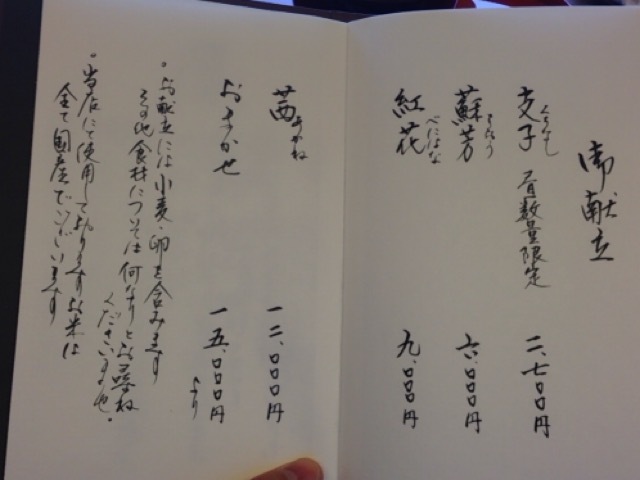 御献立
くちなし
支子 昼数量限定 二、七〇〇円
すおう
蘇芳 六、〇〇〇円
べにばな
紅花 九、〇〇〇円
あかね
茜 一二、〇〇〇円
おまかせ 一五、〇〇〇円より
・お献立には小麦・卵を含みます
その他食材については何なりとお尋ね
くださいませ。
・当店にて使用しておりますお米は
全て国産でございます